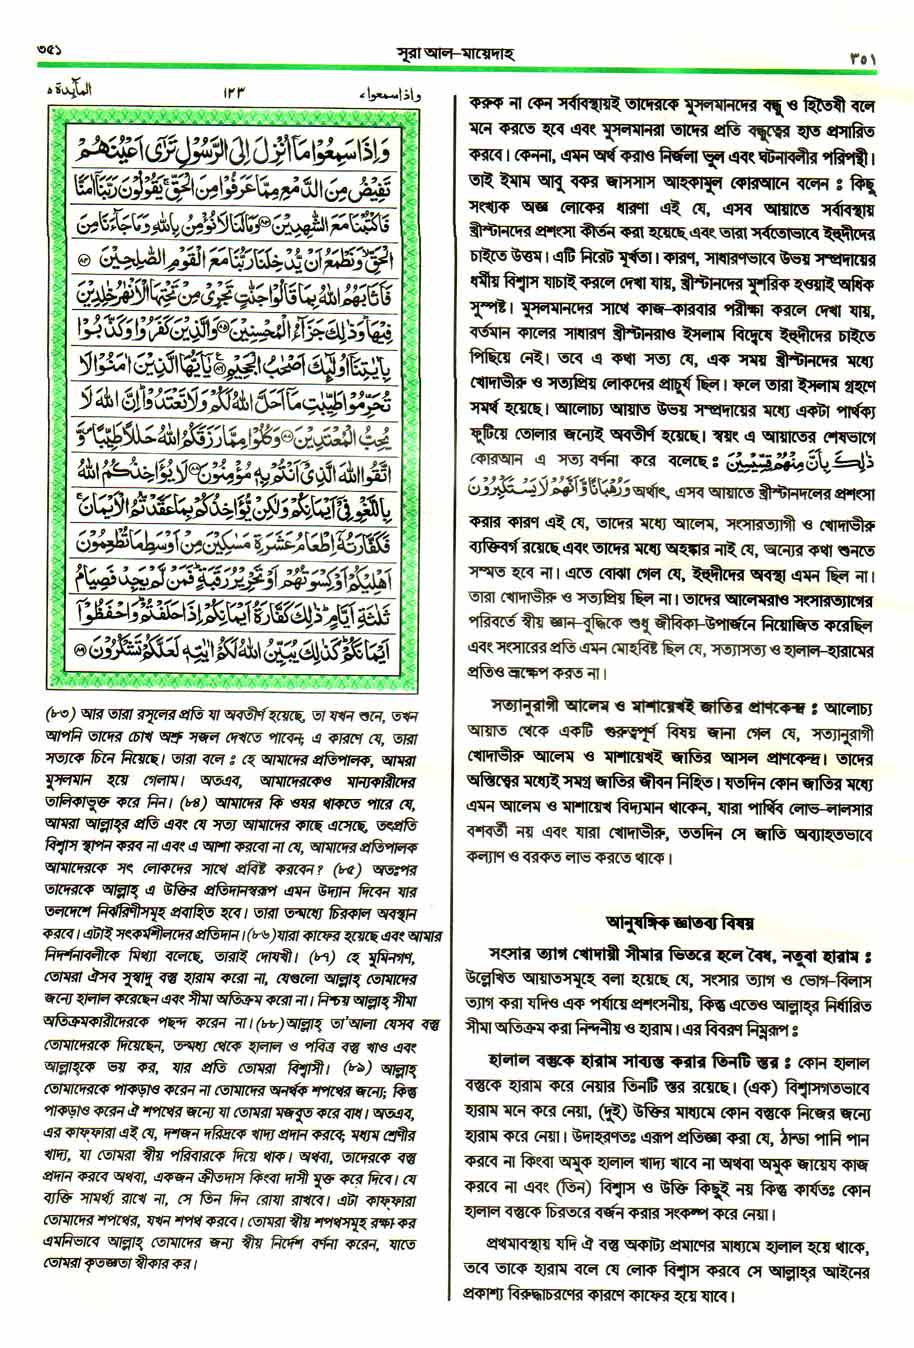 ৩৫১
সূরা আল-মায়েদাহ
٣٥١
المآئدة ٥
١٢٣
واذا سمعوا ٧
وَاِذَا سَمِعُوْا مَاۤ اُنْزِلَ اِلَى الرَّسُوْلِ تَرٰٓى اَعْيُنَهُمْ
تَفِيْضُ مِنَ الدَّمْعِ مِمَّا عَرَفُوْا مِنَ الْحَقِّ ۚ يَقُوْلُوْنَ رَبَّنَاۤ اٰمَنَّا
فَاكْتُبْنَا مَعَ الشّٰهِدِيْنَ ﴿٨٣﴾ وَمَا لَنَا لَا نُؤْمِنُ بِاللّٰهِ وَمَا جَآءَنَا مِنَ
الْحَقِّ ۙ وَنَطْمَعُ اَنْ يُّدْخِلَنَا رَبُّنَا مَعَ الْقَوْمِ الصّٰلِحِيْنَ ﴿٨٤﴾
فَاَثَابَهُمُ اللّٰهُ بِمَا قَالُوْا جَنّٰتٍ تَجْرِيْ مِنْ تَحْتِهَا الْاَنْهٰرُ خٰلِدِيْنَ
فِيْهَا ؕ وَذٰلِكَ جَزَآءُ الْمُحْسِنِيْنَ ﴿٨٥﴾ وَالَّذِيْنَ كَفَرُوْا وَكَذَّبُوْا
بِاٰيٰتِنَاۤ اُولٰٓئِكَ اَصْحٰبُ الْجَحِيْمِ ﴿٨٦﴾ يٰۤاَيُّهَا الَّذِيْنَ اٰمَنُوْا لَا
تُحَرِّمُوْا طَيِّبٰتِ مَاۤ اَحَلَّ اللّٰهُ لَكُمْ وَلَا تَعْتَدُوْا ؕ اِنَّ اللّٰهَ لَا
يُحِبُّ الْمُعْتَدِيْنَ ﴿٨٧﴾ وَكُلُوْا مِمَّا رَزَقَكُمُ اللّٰهُ حَلٰلًا طَيِّبًا ۪ وَّ
اتَّقُوا اللّٰهَ الَّذِيْۤ اَنْتُمْ بِهٖ مُؤْمِنُوْنَ ﴿٨٨﴾ لَا يُؤَاخِذُكُمُ اللّٰهُ
بِاللَّغْوِ فِيْۤ اَيْمَانِكُمْ وَلٰكِنْ يُّؤَاخِذُكُمْ بِمَا عَقَّدْتُّمُ الْاَيْمَانَ ۚ
فَكَفَّارَتُهٗۤ اِطْعَامُ عَشَرَةِ مَسٰكِيْنَ مِنْ اَوْسَطِ مَا تُطْعِمُوْنَ
اَهْلِيْكُمْ اَوْ كِسْوَتُهُمْ اَوْ تَحْرِيْرُ رَقَبَةٍ ؕ فَمَنْ لَّمْ يَجِدْ فَصِيَامُ
ثَلٰثَةِ اَيَّامٍ ؕ ذٰلِكَ كَفَّارَةُ اَيْمَانِكُمْ اِذَا حَلَفْتُمْ ؕ وَاحْفَظُوْۤا
اَيْمَانَكُمْ ؕ كَذٰلِكَ يُبَيِّنُ اللّٰهُ لَكُمْ اٰيٰتِهٖ لَعَلَّكُمْ تَشْكُرُوْنَ ﴿٨٩﴾
(৮৩) আর তারা রসূলের প্রতি যা অবতীর্ণ হয়েছে, তা যখন শুনে, তখন
আপনি তাদের চোখ অশ্রু সজল দেখতে পাবেন; এ কারণে যে, তারা
সত্যকে চিনে নিয়েছে। তারা বলে : হে আমাদের প্রতিপালক, আমরা
মুসলমান হয়ে গেলাম। অতএব, আমাদেরকেও মান্যকারীদের
তালিকাভুক্ত করে নিন। (৮৪) আমাদের কি ওযর থাকতে পারে যে,
আমরা আল্লাহ্‌র প্রতি এবং যে সত্য আমাদের কাছে এসেছে, তৎপ্রতি
বিশ্বাস স্থাপন করব না এবং এ আশা করবো না যে, আমাদের প্রতিপালক
আমাদেরকে সৎ লোকদের সাথে প্রবিষ্ট করবেন? (৮৫) অতঃপর
তাদেরকে আল্লাহ্ এ উক্তির প্রতিদানস্বরূপ এমন উদ্যান দিবেন যার
তলদেশে নির্ঝরিণীসমূহ প্রবাহিত হবে। তারা তন্মধ্যে চিরকাল অবস্থান
করবে। এটাই সৎকর্মশীলদের প্রতিদান। (৮৬) যারা কাফের হয়েছে এবং আমার
নিদর্শনাবলীকে মিথ্যা বলেছে, তারাই দোযখী। (৮৭) হে মুমিনগণ,
তোমরা ঐসব সুস্বাদু বস্তু হারাম করো না, যেগুলো আল্লাহ্ তোমাদের
জন্যে হালাল করেছেন এবং সীমা অতিক্রম করো না। নিশ্চয় আল্লাহ্ সীমা
অতিক্রমকারীদেরকে পছন্দ করেন না। (৮৮) আল্লাহ্ তা'আলা যেসব বস্তু
তোমাদেরকে দিয়েছেন, তন্মধ্য থেকে হালাল ও পবিত্র বস্তু খাও এবং
আল্লাহ্‌কে ভয় কর, যার প্রতি তোমরা বিশ্বাসী। (৮৯) আল্লাহ্
তোমাদেরকে পাকড়াও করেন না তোমাদের অনর্থক শপথের জন্যে; কিন্তু
পাকড়াও করেন ঐ শপথের জন্যে যা তোমরা মজবুত করে বাধ। অতএব,
এর কাফ্ফারা এই যে, দশজন দরিদ্রকে খাদ্য প্রদান করবে; মধ্যম শ্রেণীর
খাদ্য, যা তোমরা স্বীয় পরিবারকে দিয়ে থাক। অথবা, তাদেরকে বস্তু
প্রদান করবে অথবা, একজন ক্রীতদাস কিংবা দাসী মুক্ত করে দিবে। যে
ব্যক্তি সামর্থ্য রাখে না, সে তিন দিন রোযা রাখবে। এটা কাফ্ফারা
তোমাদের শপথের, যখন শপথ করবে। তোমরা স্বীয় শপথসমূহ রক্ষা কর
এমনিভাবে আল্লাহ্ তোমাদের জন্য স্বীয় নির্দেশ বর্ণনা করেন, যাতে
তোমরা কৃতজ্ঞতা স্বীকার কর।
করুক না কেন সর্বাবস্থায়ই তাদেরকে মুসলমানদের বন্ধু ও হিতৈষী বলে
মনে করতে হবে এবং মুসলমানরা তাদের প্রতি বন্ধুত্বের হাত প্রসারিত
করবে। কেননা, এমন অর্থ করাও নির্জলা ভুল এবং ঘটনাবলীর পরিপন্থী।
তাই ইমাম আবু বকর জাসসাস আহকামুল কোরআনে বলেন : কিছু
সংখ্যক অজ্ঞ লোকের ধারণা এই যে, এসব আয়াতে সর্বাবস্থায়
খ্রীস্টানদের প্রশংসা কীর্তন করা হয়েছে এবং তারা সর্বতোভাবে ইহুদীদের
চাইতে উত্তম। এটি নিরেট মূর্খতা। কারণ, সাধারণভাবে উভয় সম্প্রদায়ের
ধর্মীয় বিশ্বাস যাচাই করলে দেখা যায়, খ্রীস্টানদের মুশরিক হওয়াই অধিক
সুস্পষ্ট। মুসলমানদের সাথে কাজ-কারবার পরীক্ষা করলে দেখা যায়,
বর্তমান কালের সাধারণ খ্রীস্টানরাও ইসলাম বিদ্বেষে ইহুদীদের চাইতে
পিছিয়ে নেই। তবে এ কথা সত্য যে, এক সময় খ্রীস্টানদের মধ্যে
খোদাভীরু ও সত্যপ্রিয় লোকদের প্রাচুর্য ছিল। ফলে তারা ইসলাম গ্রহণে
সমর্থ হয়েছে। আলোচ্য আয়াত উভয় সম্প্রদায়ের মধ্যে একটা পার্থক্য
ফুটিয়ে তোলার জন্যেই অবতীর্ণ হয়েছে। স্বয়ং এ আয়াতের শেষভাগে
কোরআন এ সত্য বর্ণনা করে বলেছে : ذٰلِكَ بِاَنَّ مِنْهُمْ قِسِّيْسِيْنَ
وَرُهْبَانًا وَّاَنَّهُمْ لَا يَسْتَكْبِرُوْنَ অর্থাৎ, এসব আয়াতে খ্রীস্টানদলের প্রশংসা
করার কারণ এই যে, তাদের মধ্যে আলেম, সংসারত্যাগী ও খোদাভীরু
ব্যক্তিবর্গ রয়েছে এবং তাদের মধ্যে অহঙ্কার নাই যে, অন্যের কথা শুনতে
সম্মত হবে না। এতে বোঝা গেল যে, ইহুদীদের অবস্থা এমন ছিল না।
তারা খোদাভীরু ও সত্যপ্রিয় ছিল না। তাদের আলেমরাও সংসারত্যাগের
পরিবর্তে স্বীয় জ্ঞান-বুদ্ধিকে শুধু জীবিকা-উপার্জনে নিয়োজিত করেছিল
এবং সংসারের প্রতি এমন মোহবিষ্ট ছিল যে, সত্যাসত্য ও হালাল-হারামের
প্রতিও ভ্রূক্ষেপ করত না।
সত্যানুরাগী আলেম ও মাশায়েখই জাতির প্রাণকেন্দ্র : আলোচ্য
আয়াত থেকে একটি গুরুত্বপূর্ণ বিষয় জানা গেল যে, সত্যানুরাগী
খোদাভীরু আলেম ও মাশায়েখই জাতির আসল প্রাণকেন্দ্র। তাদের
অস্তিত্বের মধ্যেই সমগ্র জাতির জীবন নিহিত। যতদিন কোন জাতির মধ্যে
এমন আলেম ও মাশায়েখ বিদ্যমান থাকেন, যারা পার্থিব লোভ-লালসার
বশবর্তী নয় এবং যারা খোদাভীরু, ততদিন সে জাতি অব্যাহতভাবে
কল্যাণ ও বরকত লাভ করতে থাকে।
আনুষঙ্গিক জ্ঞাতব্য বিষয়
সংসার ত্যাগ খোদায়ী সীমার ভিতরে হলে বৈধ, নতুবা হারাম :
উল্লেখিত আয়াতসমূহে বলা হয়েছে যে, সংসার ত্যাগ ও ভোগ-বিলাস
ত্যাগ করা যদিও এক পর্যায়ে প্রশংসনীয়, কিন্তু এতেও আল্লাহ্‌র নির্ধারিত
সীমা অতিক্রম করা নিন্দনীয় ও হারাম। এর বিবরণ নিম্নরূপঃ
হালাল বস্তুকে হারাম সাব্যস্ত করার তিনটি স্তর : কোন হালাল
বস্তুকে হারাম করে নেয়ার তিনটি স্তর রয়েছে। (এক) বিশ্বাসগতভাবে
হারাম মনে করে নেয়া, (দুই) উক্তির মাধ্যমে কোন বস্তুকে নিজের জন্যে
হারাম করে নেয়া। উদাহরণতঃ এরূপ প্রতিজ্ঞা করা যে, ঠান্ডা পানি পান
করবে না কিংবা অমুক হালাল খাদ্য খাবে না অথবা অমুক জায়েয কাজ
করবে না এবং (তিন) বিশ্বাস ও উক্তি কিছুই নয় কিন্তু কার্যতঃ কোন
হালাল বস্তুকে চিরতরে বর্জন করার সংকল্প করে নেয়া।
প্রথমাবস্থায় যদি ঐ বস্তু অকাট্য প্রমাণের মাধ্যমে হালাল হয়ে থাকে,
তবে তাকে হারাম বলে যে লোক বিশ্বাস করবে সে আল্লাহ্‌র আইনের
প্রকাশ্য বিরুদ্ধাচরণের কারণে কাফের হয়ে যাবে।